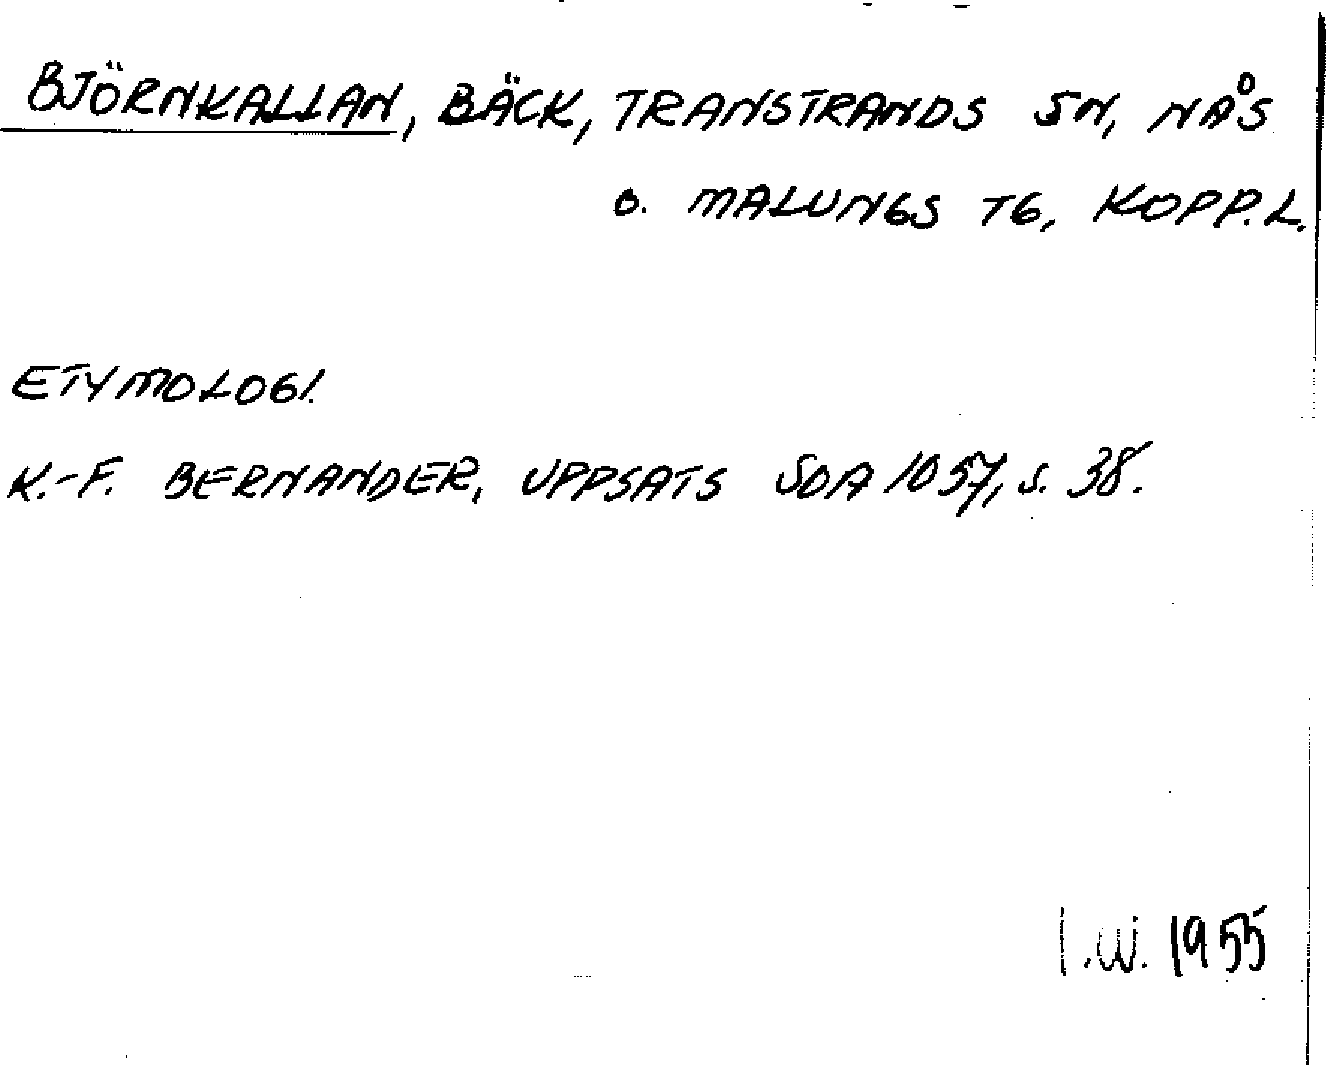 BJÖRNKALLAN, BÄCK, TRANSTRANDS SN, NÅS
O. MALUNGS TG, KOPP.L.
ETYMOLOGI.
K.-F. BERNANDER, UPPSATS SOA 1057, S. 38.
I.W. 1955